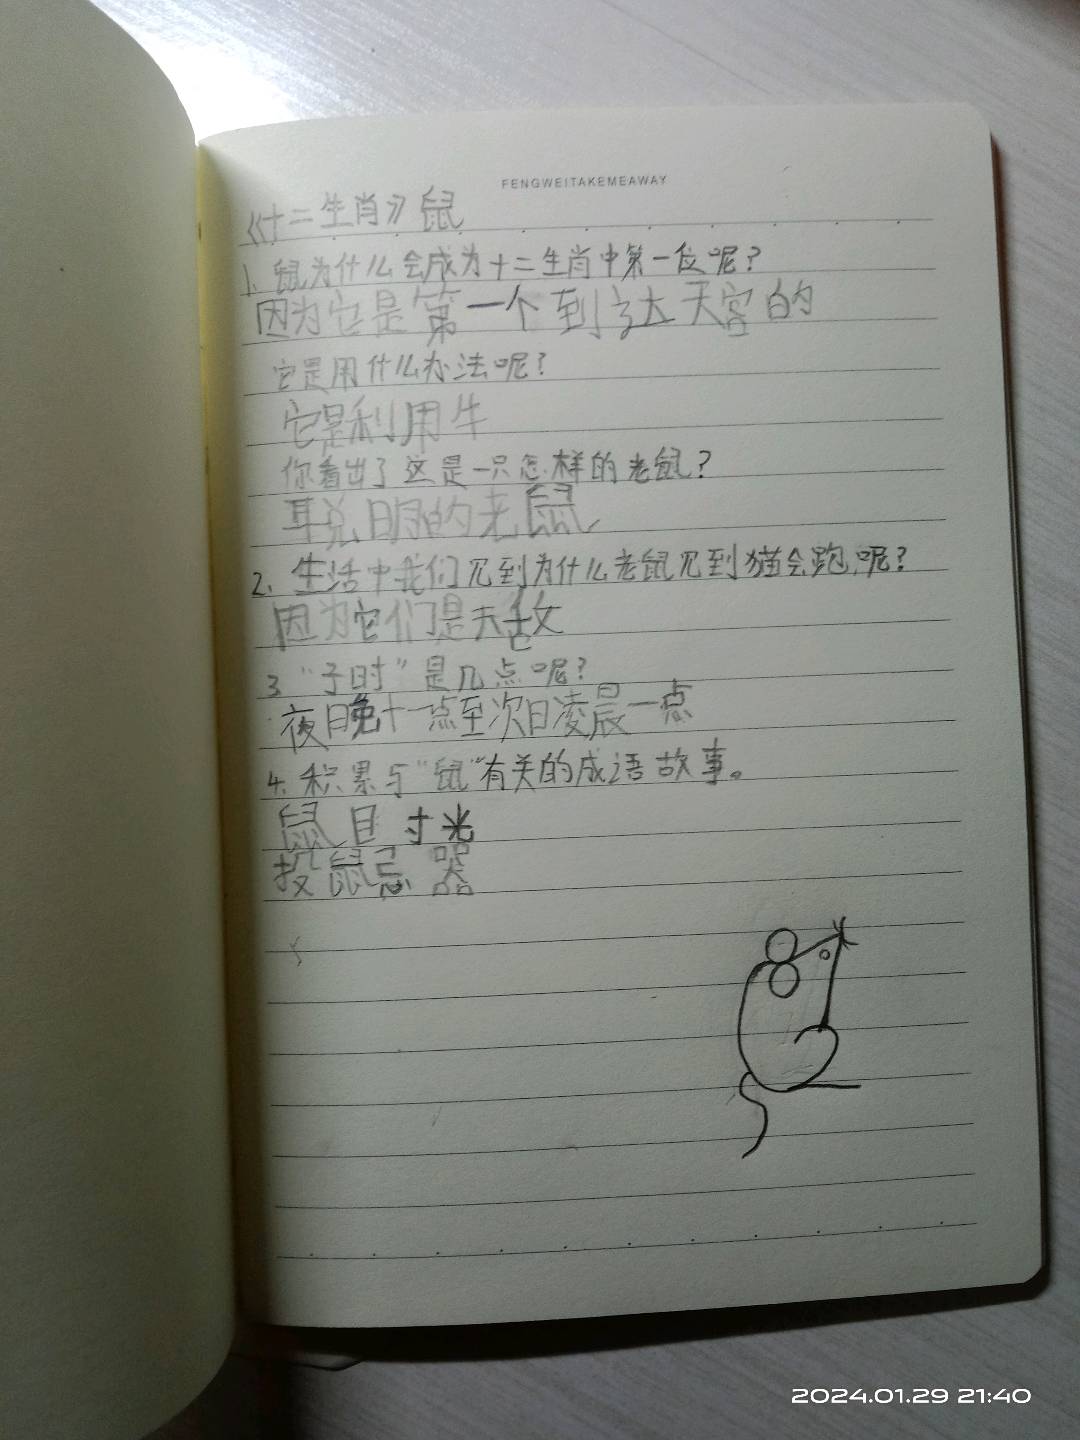 FENGWEITAKEMEAWAY
《十二生肖》鼠
1. 鼠为什么会成为十二生肖中第一位呢?
因为它是第一个到达天宫的
它是用什么办法呢?
它是利用牛
你看出了这是一只怎样的老鼠?
聪明的老鼠
2. 生活中我们见到为什么老鼠见到猫会跑呢?
因为它们是天敌
3 "子时"是几点呢?
夜晚十一点至次日凌晨一点
4. 积累与"鼠"有关的成语故事。
鼠目寸光
投鼠忌器
2024.01.29 21:40